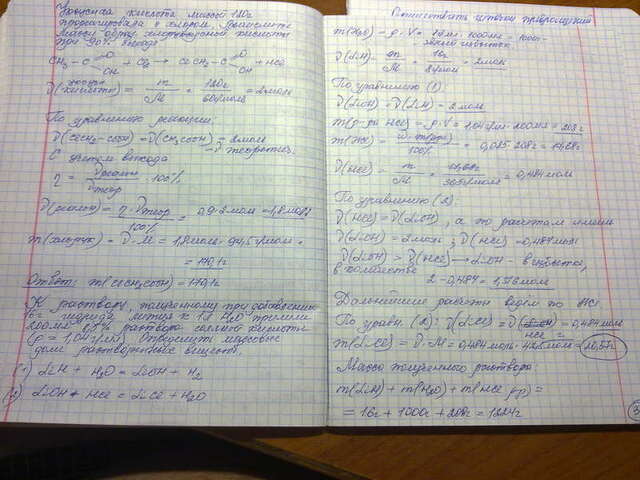 Уксусная кислота массой 120г
прореагировала с хлором. Вычислите
массу обр. хлоруксусной кислоты
при 90% выходе
CH3-C=O OH + Cl2 → ClCH2-C=O OH + HCl
ν(уксусн. кислоты) = m/M = 120г/60г/моль = 2моль
По уравнению реакции:
ν(ClCH2-COOH) = ν(CH3COOH) = 2моль
- ν теоретич.
С учётом выхода
η = νреальн/νтеор · 100%
= η·νтеор/100% = 0,9·2моль = 1,8моль
= ν·M = 1,8моль · 94,5г/моль =
= 170,1г
Ответ: m(ClCH2COOH) = 170,1г
К раствору, полученному при добавлении
16г гидрида лития к 1л H2O прилили
200мл 8,5% раствора соляной кислоты
(ρ = 1,04г/мл). Определить массовые
доли растворённых веществ.
1) LiH + H2O = LiOH + H2
2) LiOH + HCl = LiCl + H2O
m(H2O) = ρ·V = 1г/мл · 1000мл = 1000г -
избыток
ν(LiH) = m/M = 16г/8г/моль = 2моль
По уравнению (1):
ν(LiOH) = ν(LiH) = 2моль
m(р-ра HCl) = ρ·V = 1,04г/мл · 200мл = 208г
= 0,085·208г = 17,68г
ν(HCl) = m/M = 17,68г/36,5г/моль = 0,484моль
По уравнению (2):
ν(HCl) = ν(LiOH), а по расчётам имеем
ν(LiOH) = 2моль; ν(HCl) = 0,484моль
ν(LiOH) > ν(HCl) → LiOH - в избытке,
в количестве
2 - 0,484 = 1,516моль
Дальнейшие расчёты ведём по HCl
По уравн. (2): ν(LiCl) = ν(HCl) = 0,484моль
m(LiCl) = ν·M = 0,484моль · 42,5г/моль = 20,57г
Масса полученного раствора:
m(LiH) + m(H2O) + m(HCl р-р) =
= 16г + 1000г + 208г = 1224г
3